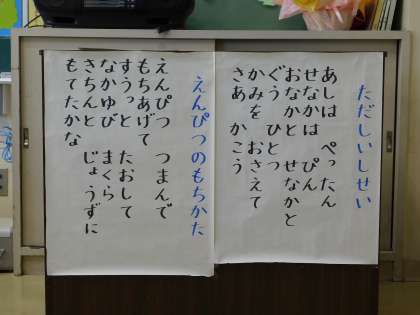 ただしいしせい
あしは ぺったん
せなかは ぴん
おなかと せなかと
ぐう ひとつ
かみを おさえて
さあ かこう
えんぴつのもちかた
えんぴつ つまんで
もちあげて
すうっと たおして
なかゆび まくら
きちんと じょうずに
もてたかな